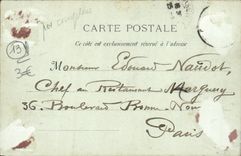 13
3€
CARTE POSTALE
Ce côté est exclusivement réservé à l'adresse
Monsieur Edouard Naudot,
Chef au Restaurant Marguery
36. Boulevard Bonne-Nou
Paris